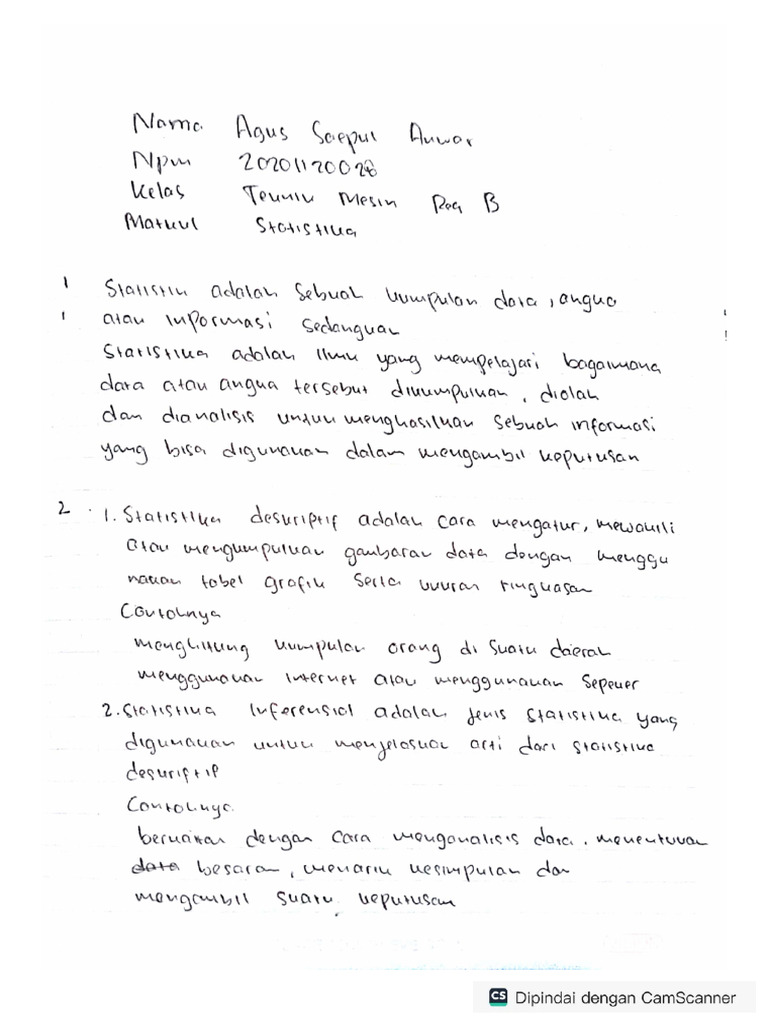 Nama Agus Saepul Anwar
Npm 20201120028
Kelas Teknik Mesin Reg B
Matkul Statistika
1 Statistik adalah sebuah kumpulan data, angka
atau informasi sedangkan
Statistika adalah ilmu yang mempelajari bagaimana
data atau angka tersebut dikumpulkan, diolah
dan dianalisis untuk menghasilkan sebuah informasi
yang bisa digunakan dalam mengambil keputusan
2. 1. Statistika deskriptif adalah cara mengatur, mewakili
atau mengumpulkan gambaran data dengan menggu
nakan tabel grafik serta ukuran ringkasan
Contohnya
menghitung kumpulan orang di suatu daerah
menggunakan internet atau menggunakan
2. Statistika Inferensial adalah jenis statistika yang
digunakan untuk menjelaskan arti dari statistika
deskriptif
Contohnya.
berkaitan dengan cara menganalisis data, menentukan
data besaran, menarik kesimpulan dan
mengambil suatu keputusan
CS Dipindai dengan CamScanner